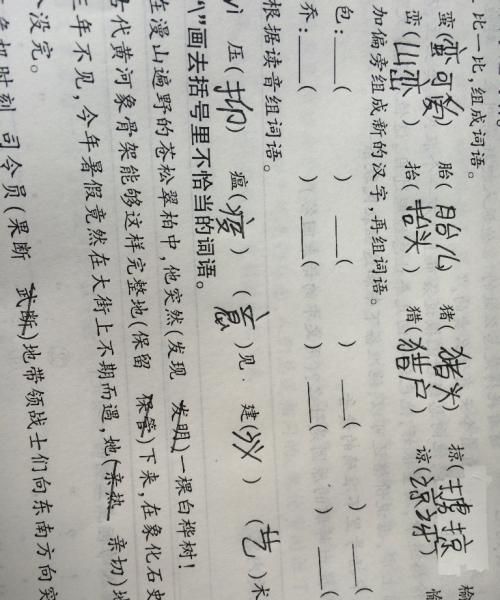 比一比,组成词语。
蛮(蛮可爱) 胎(胎儿) 猪(猪头) 掠(掳掠) 榆
峦(山峦) 抬(抬头) 猎(猎户) 谅( ) 愉
加偏旁组成新的汉字,再组词语。
包:___( ) ___( ) ___( ) ___(
乔:___( ) ___( ) ___( ) ___(
根据读音组词语。
yì 压(抑) 瘟(疫) (意)见 建(议) (艺)术
“\”画去括号里不恰当的词语。
在漫山遍野的苍松翠柏中,他突然(发现 发明)一棵白桦树!
古代黄河象骨架能够这样完整地(保留 保管)下来,在象化石史
三年不见,今年暑假竟然在大街上不期而遇,她(亲热 亲切)地
没完。
危机时刻,司令员(果断 武断)地带领战士们向东南方向突